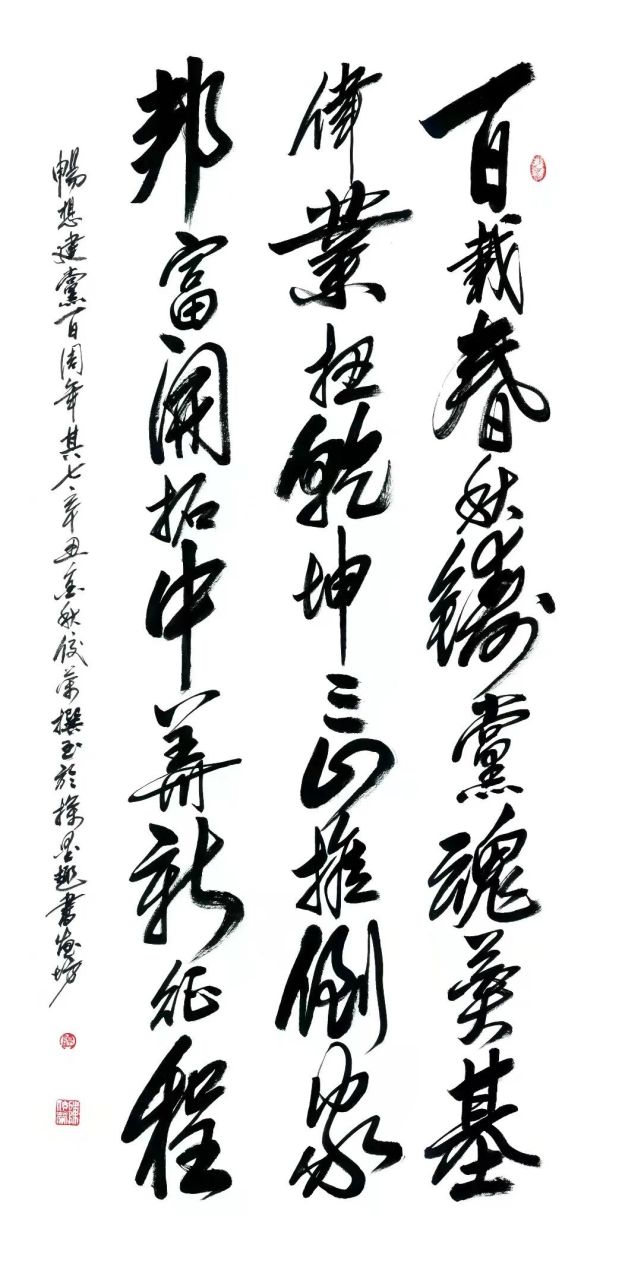 百载春秋鑄黨魂奠基
偉業扭乾坤三山推倒家
邦富開拓中華新征程
暢想建黨百周年其七辛丑金秋 撰书於 墨趣書画坊